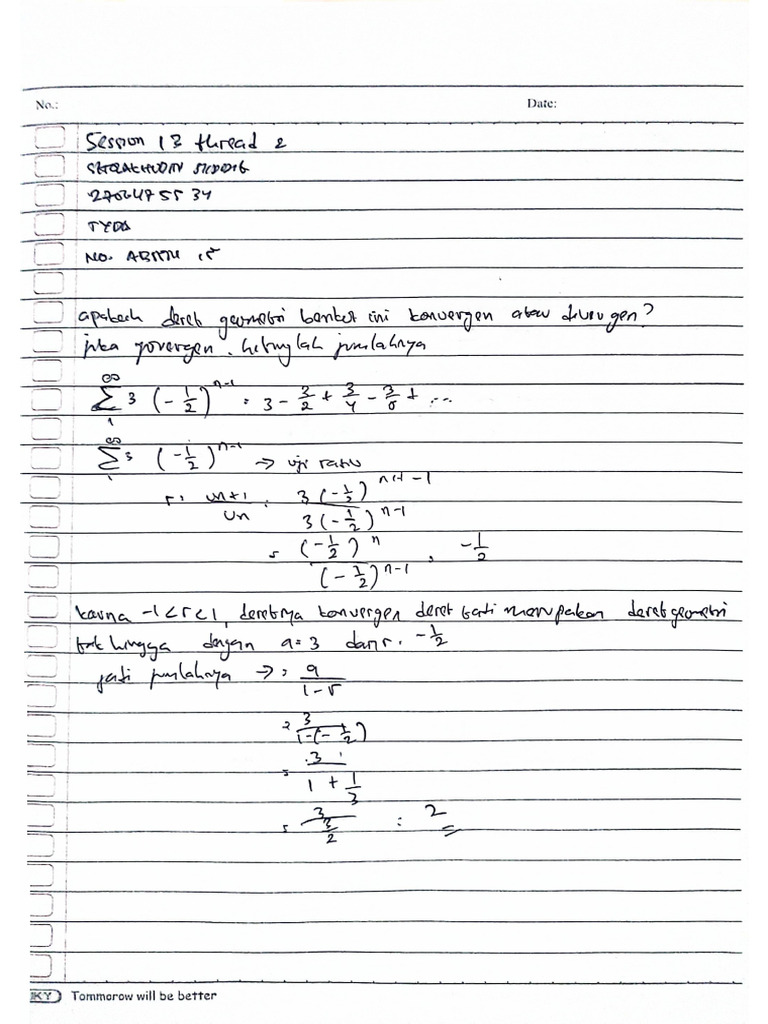 No.: Date:
Session 13 thread 2
TYDA
apakah deret geometri berikut ini konvergen atau divergen?
jika konvergen, hitunglah jumlahnya
∞ Σ 1 3 (-1/2)^(n-1) = 3 - 3/2 + 3/4 - 3/8 + ...
∞ Σ 1 3 (-1/2)^(n-1) → uji ratio
r = un+1 / un = 3(-1/2)^(n+1-1) / 3(-1/2)^(n-1)
= (-1/2)^n / (-1/2)^(n-1) = -1/2
karna -1<r<1, deretnya konvergen deret tadi merupakan deret geometri
tak hingga dengan a=3 dan r = -1/2
jadi jumlahnya → = a / 1-r
= 3 / 1-(-1/2)
= 3 / 1 + 1/3
= 3 / 3/2 = 2
KY Tommorow will be better